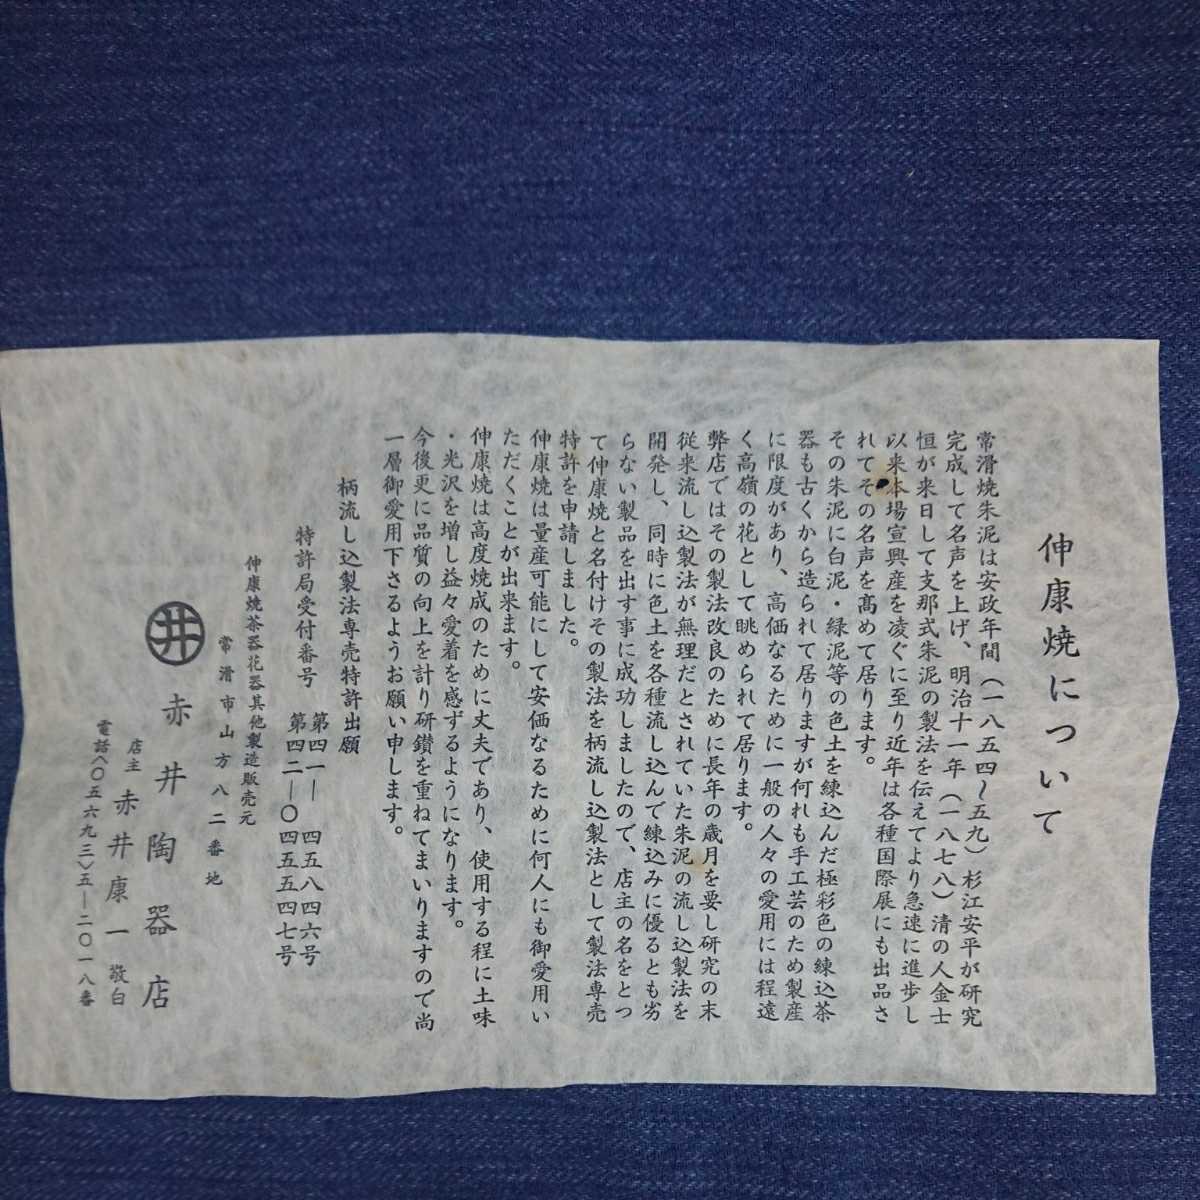 伸康焼について
常滑焼朱泥は安政年間(一八五四〜五九)杉江安平が研究
完成して名声を上げ、明治十一年(一八七八)清の人金士
恒が来日して支那式朱泥の製法を伝えてより急速に進歩し
以来本場宣興産を凌ぐに至り近年は各種国際展にも出品さ
れてその名声を高めて居ります。
その朱泥に白泥・緑泥等の色土を練込んだ極彩色の練込茶
器も古くから造られて居りますが何れも手工芸のため製産
に限度があり、高価なるために一般の人々の愛用には程遠
く高嶺の花として眺められて居ります。
弊店ではその製法改良のために長年の歳月を要し研究の末
従来流し込製法が無理だとされていた朱泥の流し込製法を
開発し、同時に色土を各種流し込んで練込みに優るとも劣
らない製品を出す事に成功しましたので、店主の名をとつ
て伸康焼と名付けその製法を柄流し込製法として製法専売
特許を申請しました。
伸康焼は量産可能にして安価なるために何人にも御愛用い
ただくことが出来ます。
伸康焼は高度焼成のために丈夫であり、使用する程に土味
・光沢を増し益々愛着を感ずるようになります。
今後更に品質の向上を計り研鑽を重ねてまいりますので尚
一層御愛用下さるようお願い申します。
柄流し込製法専売特許出願
特許局受付番号 第四一—四五八四六号
第四二—〇四五五四七号
伸康焼茶器花器其他製造販売元
常滑市山方八二番地
井 赤井陶器店
店主 赤井康一 敬白
電話〈〇五六九三〉五—二〇一八番